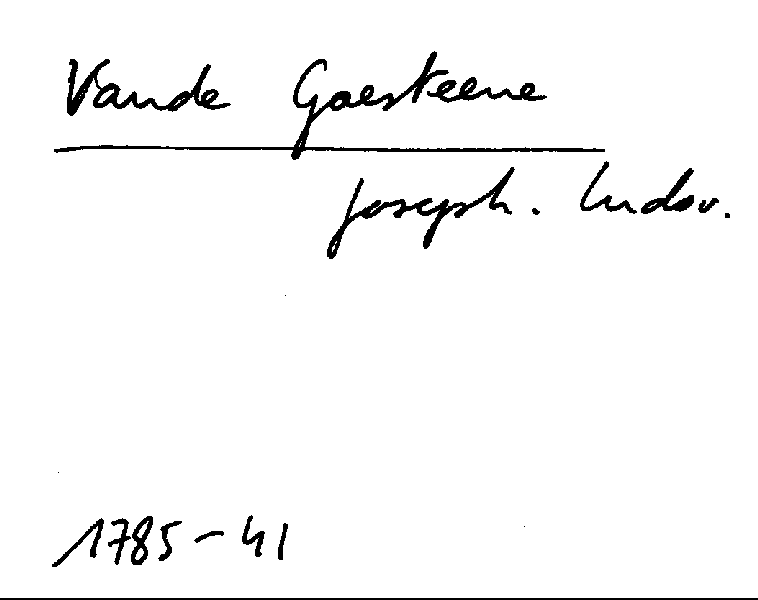 Vande Gaesteene
Joseph. Ludov.
1785-41